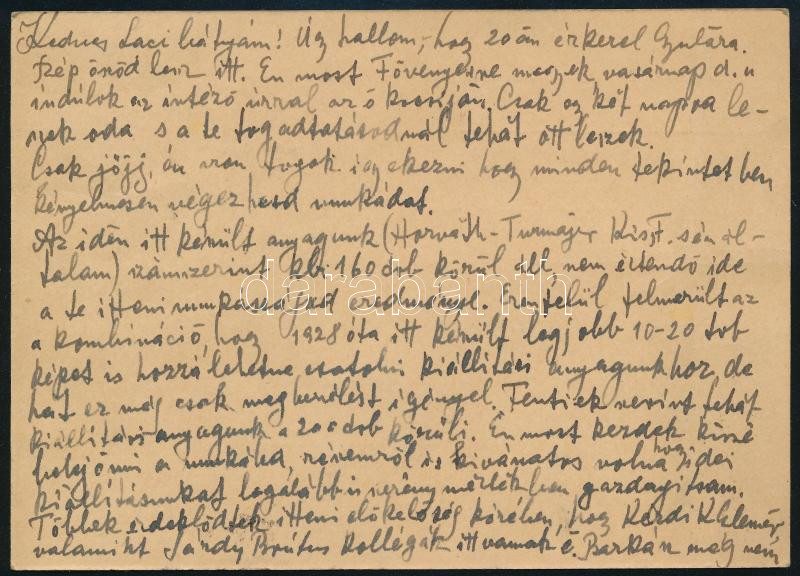 Kedves Laci bátyám! Úgy hallom, hogy 20án érkezel Gyulára.
Szép időd lesz itt. Én most Fövenyesre megyek vasárnap d. u
indulok az intéző úrral az ő kocsiján. Csak egy két napra le-
szek oda s a te fogadtatásodnál tehát itt leszek.
Csak jöjj, én rajta fogok igyekezni hogy minden tekintetben
kényelmesen végezhesd munkádat.
Az idén itt készült anyagunk (Horváth - Turmayer Kiszt. sén ál-
talam) számszerint kb. 160 dob körül áll, nem értendő ide
a te itteni munkásságod eredménye. Ezenfelül felmerült az
a kombináció, hogy 1928 óta itt készült legjobb 10-20 drb
képet is hozzá lehetne csatolni kiállítási anyagunkhoz, de
hát ez még csak megbeszélést igényel. Fentiek szerint tehát
kiállítási anyagunk a 200 drb körüli. Én most kezdek kissé
belejönni a munkába, részemről is kívánatos volna hogy idei
kiállításunkat legalább is szerény mértékben gazdagítsam.
Többek érdeklődtek itteni előkelőség körében, hogy Kardi Klelemér
valamint Sárdy Brútus kollégák itt vannak é. Barkász még nem
darabanth